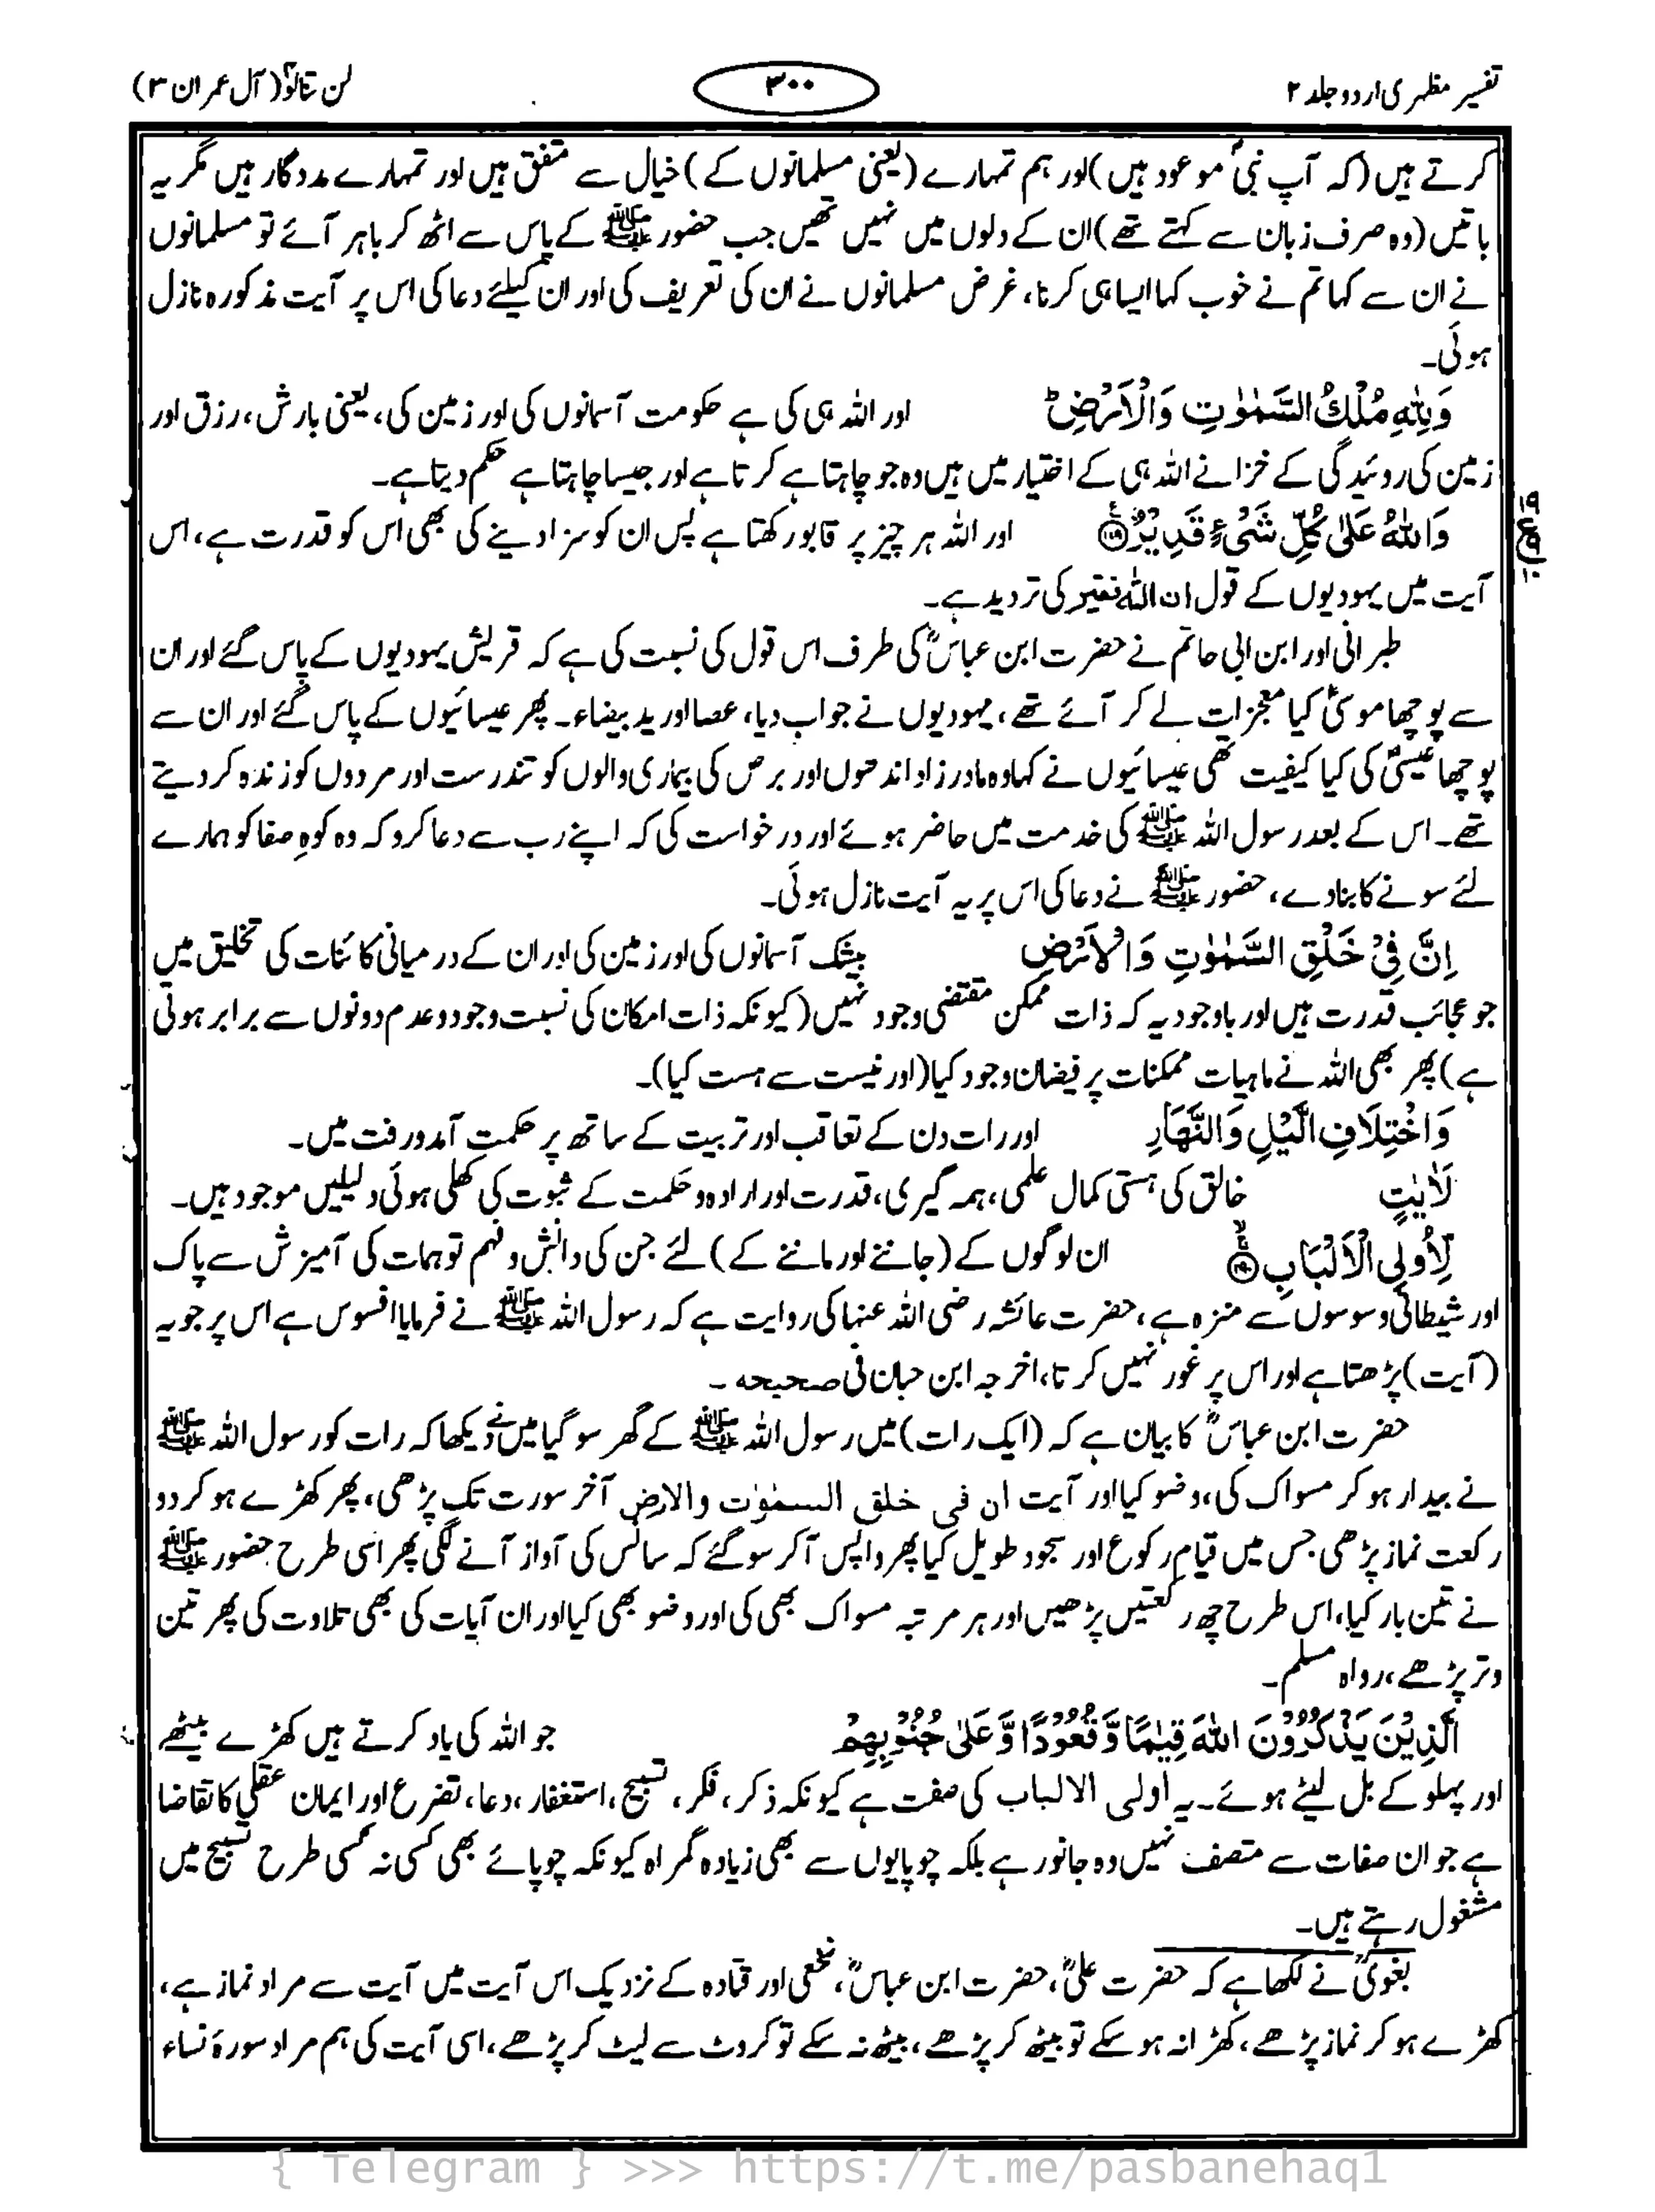 تفسیر مظہری اردو جلد ۲
۳۰۰
لن تنالوا (آل عمران ۳)
کرتے ہیں (کہ آپ نبی موعود ہیں) اور ہم تمہارے (یعنی مسلمانوں کے) خیال سے متفق ہیں اور تمہارے مددگار ہیں مگر یہ
باتیں (وہ صرف زبان سے کہتے تھے) ان کے دلوں میں نہیں تھیں جب حضور ﷺ کے پاس سے اٹھ کر باہر آئے تو مسلمانوں
نے ان سے کہا تم نے خوب کہا ایسا ہی کرنا، غرض مسلمانوں نے ان کی تعریف کی اور ان کیلئے دعا کی اس پر آیت مذکورہ نازل
ہوئی۔
وَلِلّٰهِ مُلْكُ السَّمٰوٰتِ وَالْاَرْضِ ؕ اور اللہ ہی کی ہے حکومت آسمانوں کی اور زمین کی، یعنی بارش، رزق اور
زمین کی روئیدگی کے خزانے اللہ ہی کے اختیار میں ہیں وہ جو چاہتا ہے کرتا ہے اور جیسا چاہتا ہے حکم دیتا ہے۔
وَاللّٰهُ عَلٰى كُلِّ شَىْءٍ قَدِيْرٌ ۝۱۸۹ اور اللہ ہر چیز پر قابو رکھتا ہے پس ان کو سزا دینے کی بھی اس کو قدرت ہے، اس
آیت میں یہودیوں کے قول ان اللہ فقیر کی تردید ہے۔
طبرانی اور ابن ابی حاتم نے حضرت ابن عباسؓ کی طرف اس قول کی نسبت کی ہے کہ قریش یہودیوں کے پاس گئے اور ان
سے پوچھا موسیٰؑ کیا معجزات لے کر آئے تھے، یہودیوں نے جواب دیا، عصا اور ید بیضاء۔ پھر عیسائیوں کے پاس گئے اور ان سے
پوچھا عیسیٰؑ کی کیا کیفیت تھی عیسائیوں نے کہا وہ مادر زاد اندھوں اور برص کی بیماری والوں کو تندرست اور مردوں کو زندہ کر دیتے
تھے۔ اس کے بعد رسول اللہ ﷺ کی خدمت میں حاضر ہوئے اور درخواست کی کہ اپنے رب سے دعا کرو کہ وہ کوہِ صفا کو ہمارے
لئے سونے کا بنا دے، حضور ﷺ نے دعا کی اس پر یہ آیت نازل ہوئی۔
اِنَّ فِىْ خَلْقِ السَّمٰوٰتِ وَالْاَرْضِ بیشک آسمانوں کی اور زمین کی اور ان کے درمیانی کائنات کی تخلیق میں
جو عجائب قدرت ہیں اور باوجودیہ کہ ذات ممکن مقتضی وجود نہیں (کیونکہ ذات امکان کی نسبت وجود و عدم دونوں سے برابر ہوتی
ہے) پھر بھی اللہ نے ماہیات ممکنات پر فیضان وجود کیا (اور نیست سے ہست کیا)۔
وَاخْتِلَافِ الَّيْلِ وَالنَّهَارِ اور رات دن کے تعاقب اور تربیت کے ساتھ پر حکمتِ آمدورفت میں۔
لَاٰيٰتٍ خالق کی ہستی کمال علمی، ہمہ گیری، قدرت اور ارادہ و حکمت کے ثبوت کی کھلی ہوئی دلیلیں موجود ہیں۔
لِّاُولِى الْاَلْبَابِ ۝۱۹۰ ان لوگوں کے (جاننے اور ماننے کے) لئے جن کی دانش و فہم توہمات کی آمیزش سے پاک
اور شیطانی وسوسوں سے منزہ ہے، حضرت عائشہ رضی اللہ عنہا کی روایت ہے کہ رسول اللہ ﷺ نے فرمایا افسوس ہے اس پر جو یہ
(آیت) پڑھتا ہے اور اس پر غور نہیں کرتا، اخرجہ ابن حبان فی صحیحہ۔
حضرت ابن عباسؓ کا بیان ہے کہ (ایک رات) میں رسول اللہ ﷺ کے گھر سو گیا میں نے دیکھا کہ رات کو رسول اللہ ﷺ
نے بیدار ہو کر مسواک کی، وضو کیا اور آیت ان فی خلق السمٰوٰت والارض آخر سورت تک پڑھی، پھر کھڑے ہو کر دو
رکعت نماز پڑھی جس میں قیام رکوع اور سجود طویل کیا پھر واپس آ کر سو گئے کہ سانس کی آواز آنے لگی پھر اسی طرح حضور ﷺ
نے تین بار کیا، اس طرح چھ رکعتیں پڑھیں اور ہر مرتبہ مسواک بھی کی اور وضو بھی کیا اور ان آیات کی بھی تلاوت کی پھر تین
وتر پڑھے، رواہ مسلم۔
الَّذِيْنَ يَذْكُرُوْنَ اللّٰهَ قِيٰمًا وَّقُعُوْدًا وَّعَلٰى جُنُوْبِهِمْ جو اللہ کی یاد کرتے ہیں کھڑے بیٹھے
اور پہلو کے بل لیٹے ہوئے۔ یہ اولی الالباب کی صفت ہے کیونکہ ذکر، فکر، تسبیح، استغفار، دعا، تضرع اور ایمان عقلی کا تقاضا
ہے جو ان صفات سے متصف نہیں وہ جانور ہے بلکہ چوپایوں سے بھی زیادہ گمراہ کیونکہ چوپائے بھی کسی نہ کسی طرح تسبیح میں
مشغول رہتے ہیں۔
بغویؒ نے لکھا ہے کہ حضرت علیؓ، حضرت ابن عباسؓ، نخعی اور قتادہ کے نزدیک اس آیت میں آیت سے مراد نماز ہے،
کھڑے ہو کر نماز پڑھے، کھڑا نہ ہو سکے تو بیٹھ کر پڑھے، بیٹھ نہ سکے تو کروٹ سے لیٹ کر پڑھے، اسی آیت کی ہم مراد سورۂ نساء
{ Telegram } >>> https://t.me/pasbanehaq1